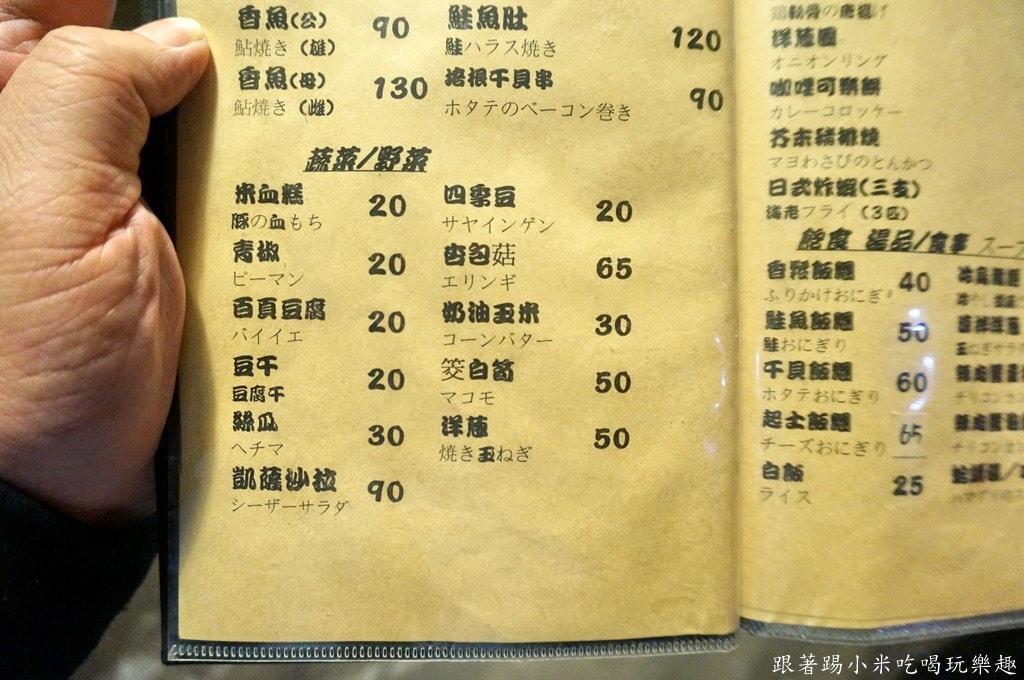 香魚(公) 90
鮎焼き (雄)
香魚(母) 130
鮎焼き (雌)
鮭魚肚 120
鮭ハラス焼き
培根干貝串 90
ホタテのベーコン巻き
蔬菜/野菜
米血糕 20
豚の血もち
青椒 20
ピーマン
百頁豆腐 20
バイイエ
豆干 20
豆腐干
絲瓜 30
ヘチマ
凱薩沙拉 90
シーザーサラダ
四季豆 20
サヤインゲン
杏包菇 65
エリンギ
奶油玉米 30
コーンバター
筊白筍 50
マコモ
洋蔥 50
焼き玉ねぎ
鶏軟骨の唐揚げ
洋蔥圈
オニオンリング
咖哩可樂餅
カレーコロッケー
芥末豬排燒
マヨわさびのとんかつ
日式炸蝦(三支)
海老フライ (3匹)
飽食 湯品/食事 スープ
香鬆飯糰 40
ふりかけおにぎり
鮭魚飯糰 50
鮭おにぎり
干貝飯糰 60
ホタテおにぎり
起士飯糰 65
チーズおにぎり
白飯 25
ライス
跟著踢小米吃喝玩樂趣